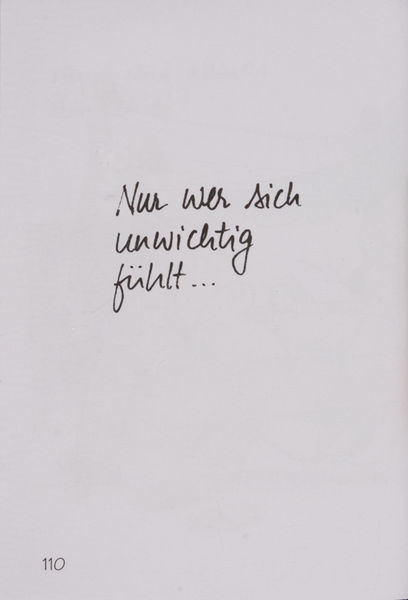 Nur wer sich
unwichtig
fühlt...
110